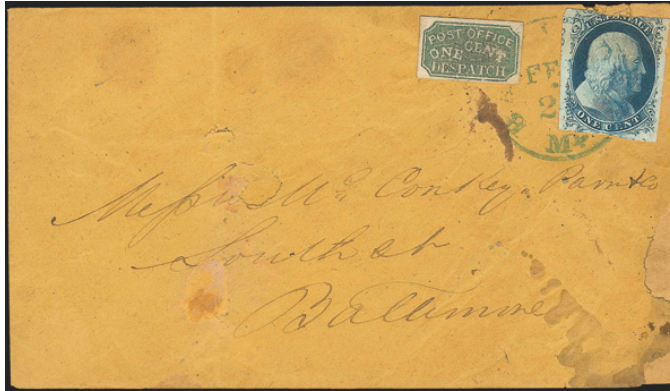 POST OFFICE
ONE CENT
DESPATCH
U.S. POSTAGE
ONE CENT
FE
2
Md
Messrs Mc Conkey, Parr & Co
South st
Baltimore